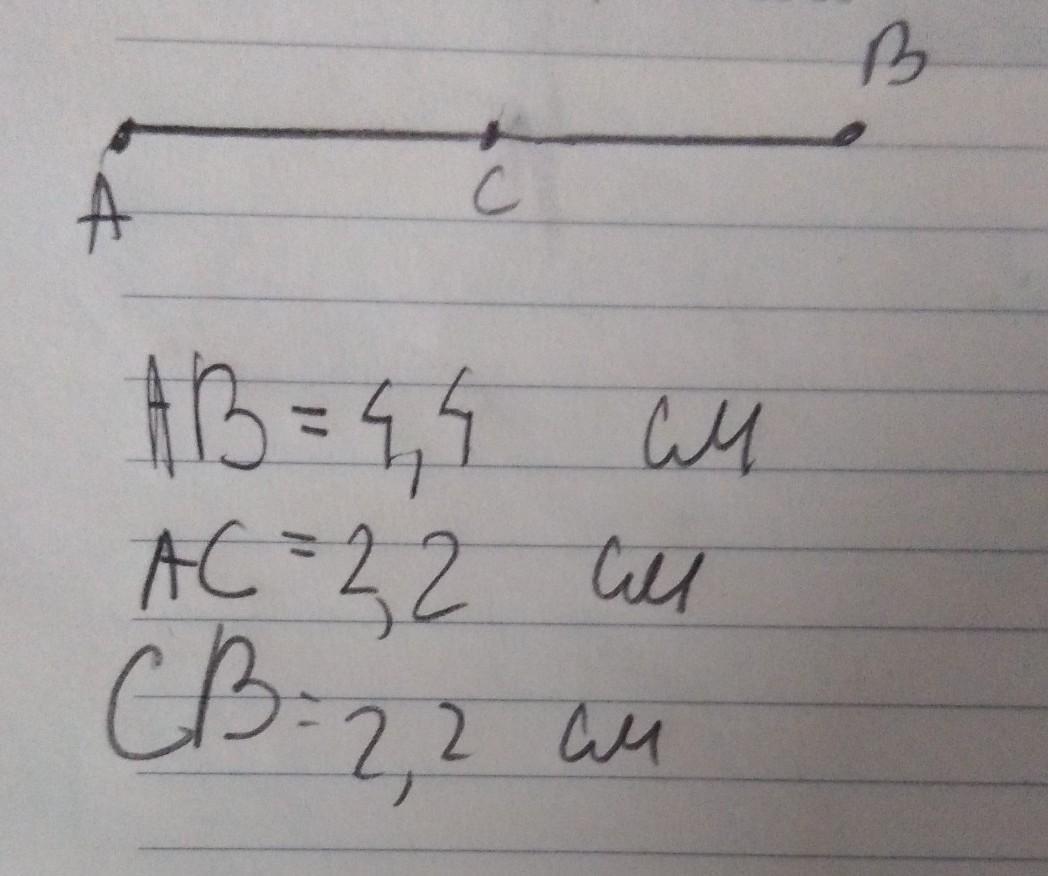 B
A
C
AB = 4,4 см
AC = 2,2 см
CB = 2,2 см